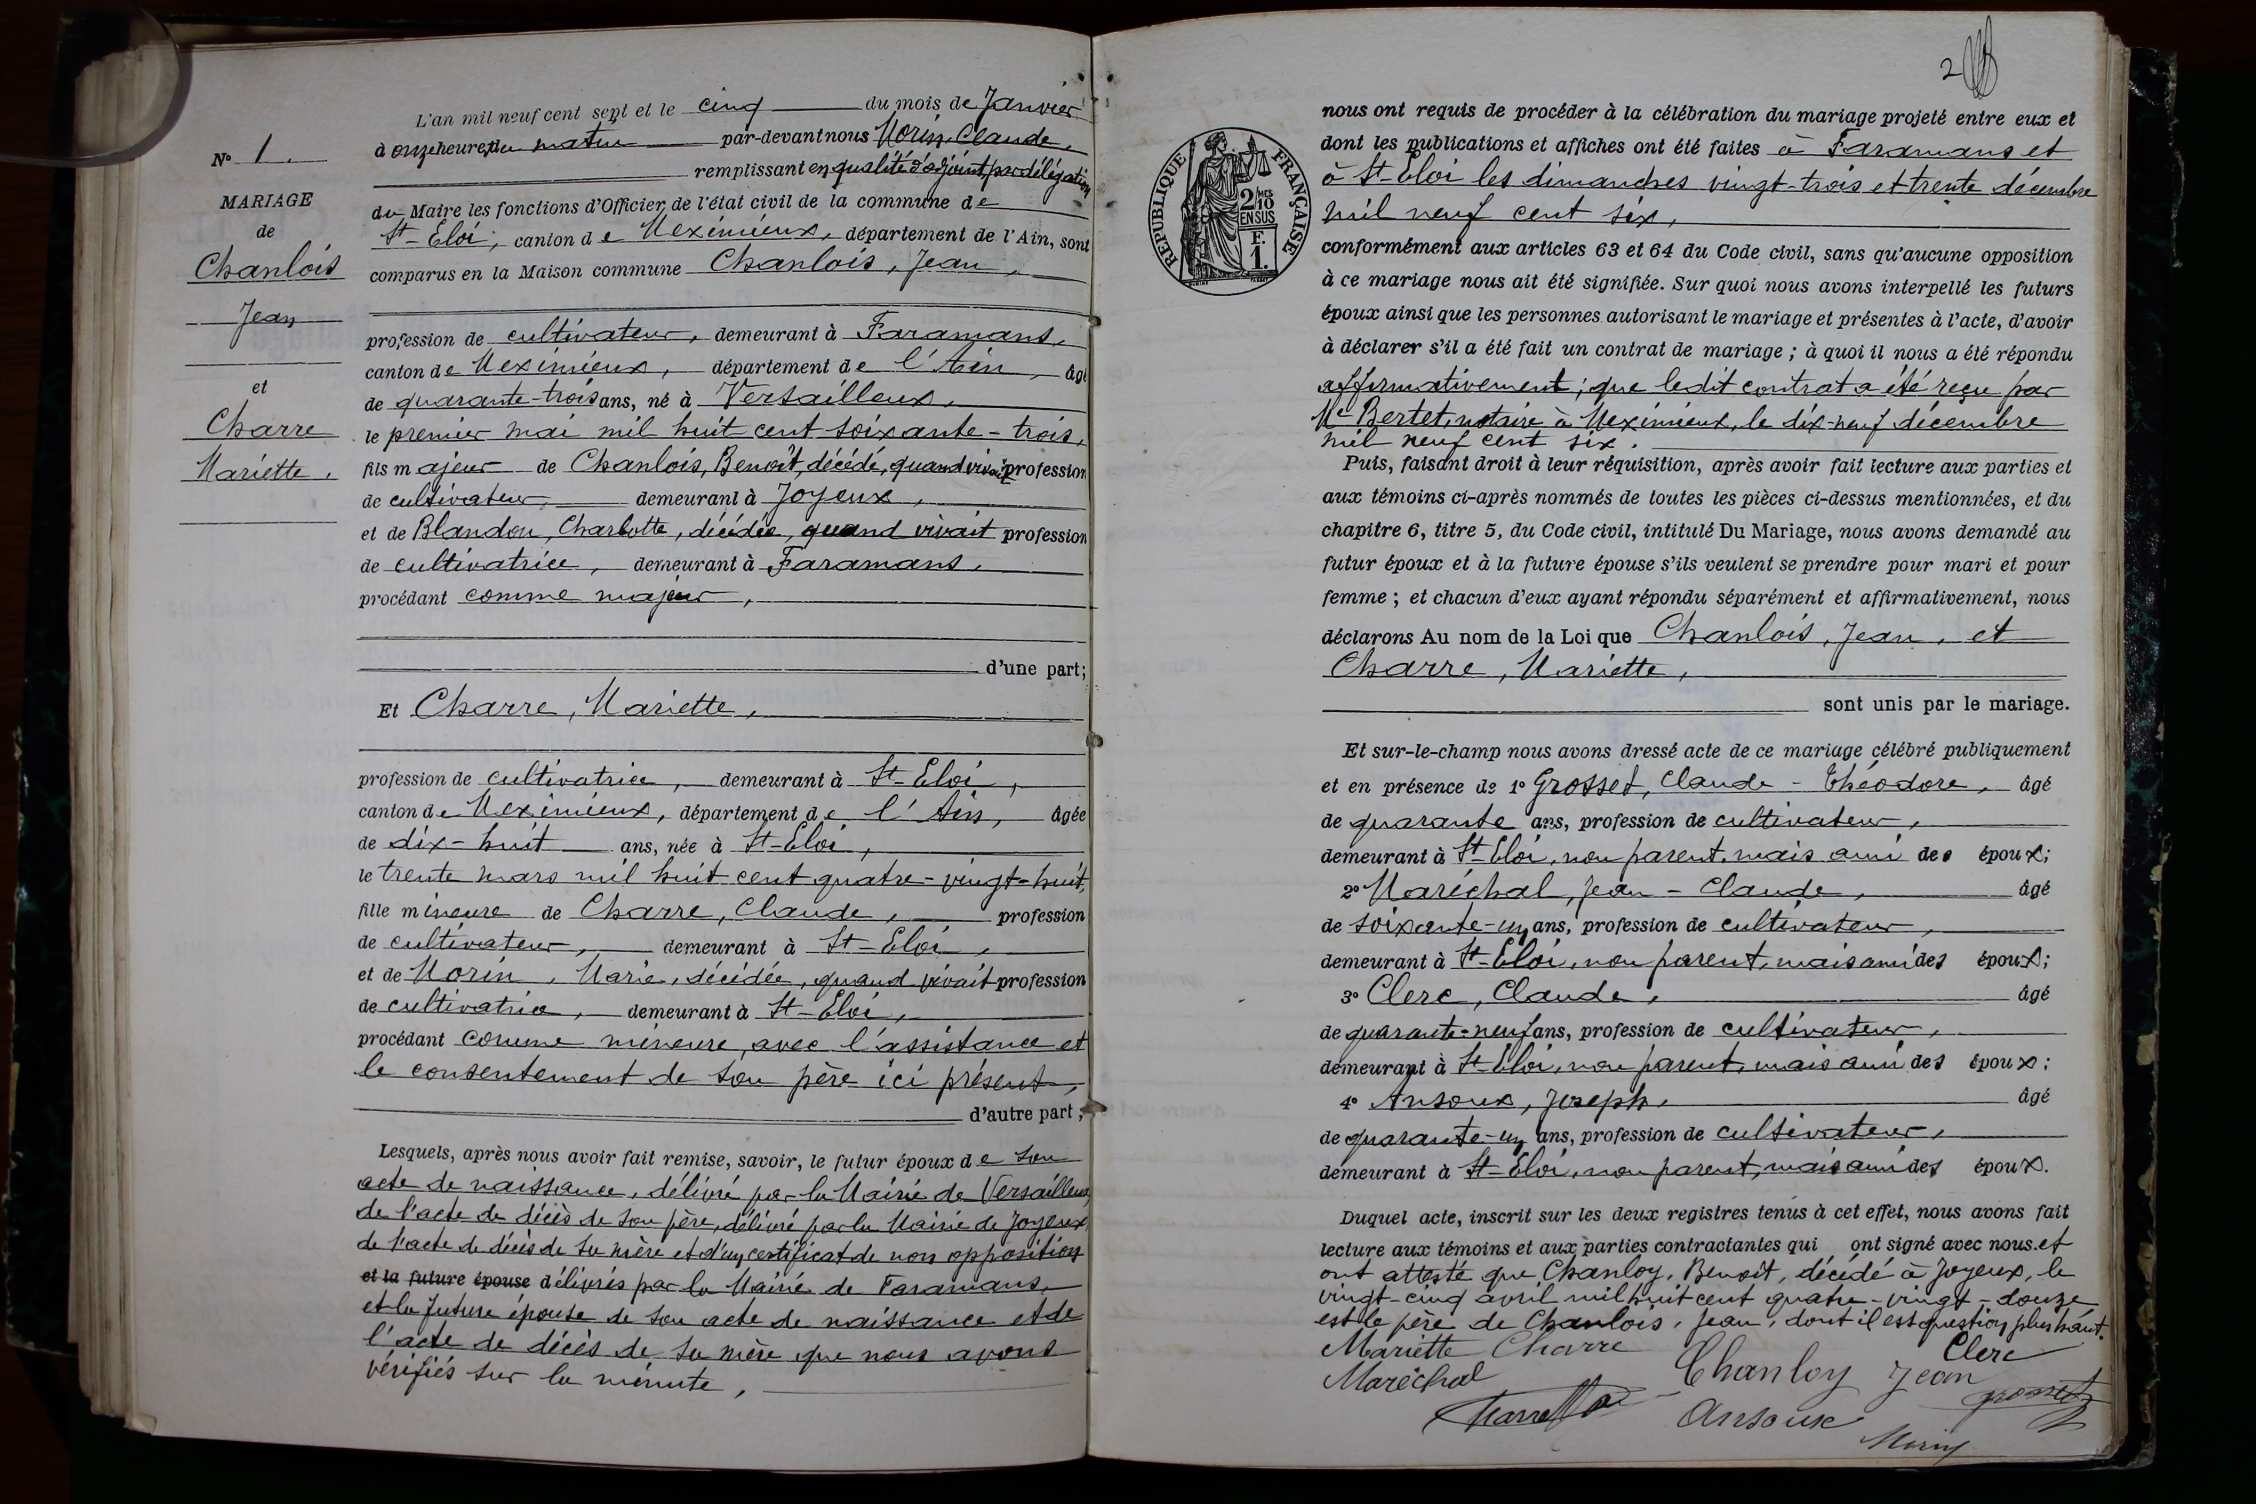 N° 1.
MARIAGE
de
Chanlois
Jean
et
Charre
Mariette.
L'an mil neuf cent sept et le cinq du mois de Janvier
à onze heures du matin par-devant nous Morin, Claude,
remplissant en qualité d'adjoint par délégation
du Maire les fonctions d'Officier de l'état civil de la commune de
St-Eloi, canton de Meximieux, département de l'Ain, sont
comparus en la Maison commune Chanlois, Jean,
profession de cultivateur, demeurant à Faramans,
canton de Meximieux, département de l'Ain, âgé
de quarante-trois ans, né à Versailleux,
le premier mai mil huit cent soixante-trois,
fils majeur de Chanlois, Benoît, décédé, quand vivait profession
de cultivateur, demeurant à Joyeux,
et de Blandon, Charlotte, décédée, quand vivait profession
de cultivatrice, demeurant à Faramans,
procédant comme majeur,
d'une part;
Et Charre, Mariette,
profession de cultivatrice, demeurant à St-Eloi,
canton de Meximieux, département de l'Ain, âgée
de dix-huit ans, née à St-Eloi,
le trente mars mil huit cent quatre-vingt-huit,
fille mineure de Charre, Claude, profession
de cultivateur, demeurant à St-Eloi,
et de Morin, Marie, décédée, quand vivait profession
de cultivatrice, demeurant à St-Eloi,
procédant comme mineure, avec l'assistance et
le consentement de son père ici présent,
d'autre part;
Lesquels, après nous avoir fait remise, savoir, le futur époux de son
acte de naissance, délivré par la Mairie de Versailleux,
de l'acte de décès de son père, délivré par la Mairie de Joyeux,
de l'acte de décès de sa mère et d'un certificat de non opposition
et la future épouse délivrés par la Mairie de Faramans,
et la future épouse de son acte de naissance et de
l'acte de décès de sa mère que nous avons
vérifiés sur la minute,
2
RÉPUBLIQUE FRANÇAISE
2/10
EN SUS
F.
1.
nous ont requis de procéder à la célébration du mariage projeté entre eux et
dont les publications et affiches ont été faites à Faramans et
à St-Eloi les dimanches vingt-trois et trente décembre
mil neuf cent six,
conformément aux articles 63 et 64 du Code civil, sans qu'aucune opposition
à ce mariage nous ait été signifiée. Sur quoi nous avons interpellé les futurs
époux ainsi que les personnes autorisant le mariage et présentes à l'acte, d'avoir
à déclarer s'il a été fait un contrat de mariage; à quoi il nous a été répondu
affirmativement; que ledit contrat a été reçu par
Me Bertet, notaire à Meximieux, le dix-neuf décembre
mil neuf cent six.
Puis, faisant droit à leur réquisition, après avoir fait lecture aux parties et
aux témoins ci-après nommés de toutes les pièces ci-dessus mentionnées, et du
chapitre 6, titre 5, du Code civil, intitulé Du Mariage, nous avons demandé au
futur époux et à la future épouse s'ils veulent se prendre pour mari et pour
femme; et chacun d'eux ayant répondu séparément et affirmativement, nous
déclarons Au nom de la Loi que Chanlois, Jean, et
Charre, Mariette,
sont unis par le mariage.
Et sur-le-champ nous avons dressé acte de ce mariage célébré publiquement
et en présence de 1° Grosset, Claude-Théodore, âgé
de quarante ans, profession de cultivateur,
demeurant à St-Eloi, non parent, mais ami des époux;
2° Maréchal, Jean-Claude, âgé
de soixante-un ans, profession de cultivateur,
demeurant à St-Eloi, non parent, mais ami des époux;
3° Clerc, Claude, âgé
de quarante-neuf ans, profession de cultivateur,
demeurant à St-Eloi, non parent, mais ami des époux;
4° Ansoux, Joseph, âgé
de quarante-un ans, profession de cultivateur,
demeurant à St-Eloi, non parent, mais ami des époux.
Duquel acte, inscrit sur les deux registres tenus à cet effet, nous avons fait
lecture aux témoins et aux parties contractantes qui ont signé avec nous. et
ont attesté que Chanloy, Benoît, décédé à Joyeux, le
vingt-cinq avril mil huit cent quatre-vingt-douze
est le père de Chanlois, Jean, dont il est question plus haut.
Mariette Charre
Clerc
Maréchal
Chanloy Jean
Grosset
Charre
Ansoux
Morin